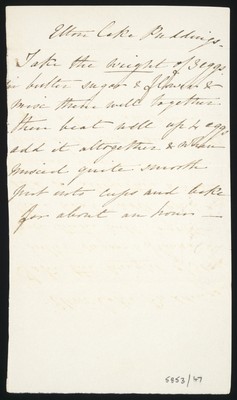 Elton Cake Puddings.
Take the weight of 3 eggs
in butter sugar & flower &
mix them well together
then beat well up 4 eggs
add it altogether & when
mixed quite smooth
put into cups and bake
for about an hour —
5853/47